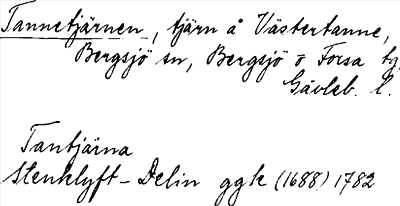 Tannetjärnen, tjärn å Västertanne,
Bergsjö sn, Bergsjö o Forsa tg
Gävleb. l.
Tantjärna
Stenklyft - Delin ggk (1688) 1782